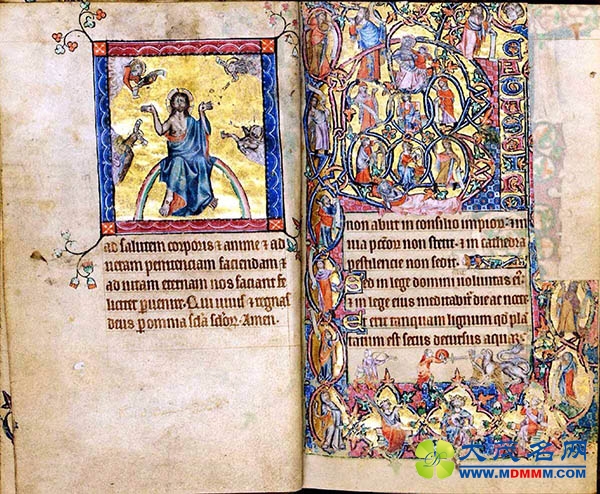 ad salutem corporis ⁊ anime ⁊ ad
uitam penitenciam faciendam ⁊
ad uitam eternam nos faciant fe
liciter peruenire. Qui uiuis ⁊ regnas
deus p omnia scla sclor. Amen.
non abiit in consilio impior ⁊ in
uia pctor non stetit. ⁊ in cathedra
pestilencie non sedit.
Sed in lege domini uoluntas ei
⁊ in lege eius meditabit die ac nocte
Et erit tanquam lignum qd plan
tatum est secus decursus aquar
大域名网
WWW.MDMMM.COM